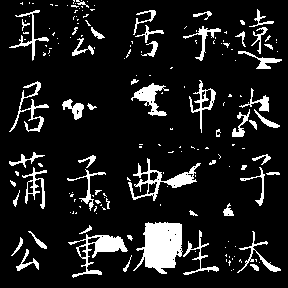 遠太子太
子申生
居曲沃
公子重
耳居蒲公